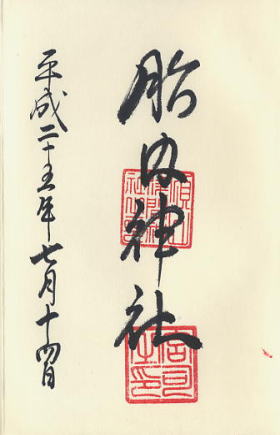 胎内神社
平成二十五年七月十四日